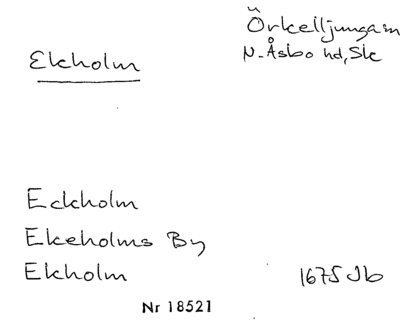 Örkelljunga sn
Ekholm
N. Åsbo hd, Sk
Eckholm
Ekeholms By
Ekholm 1675 Jb
Nr 18521